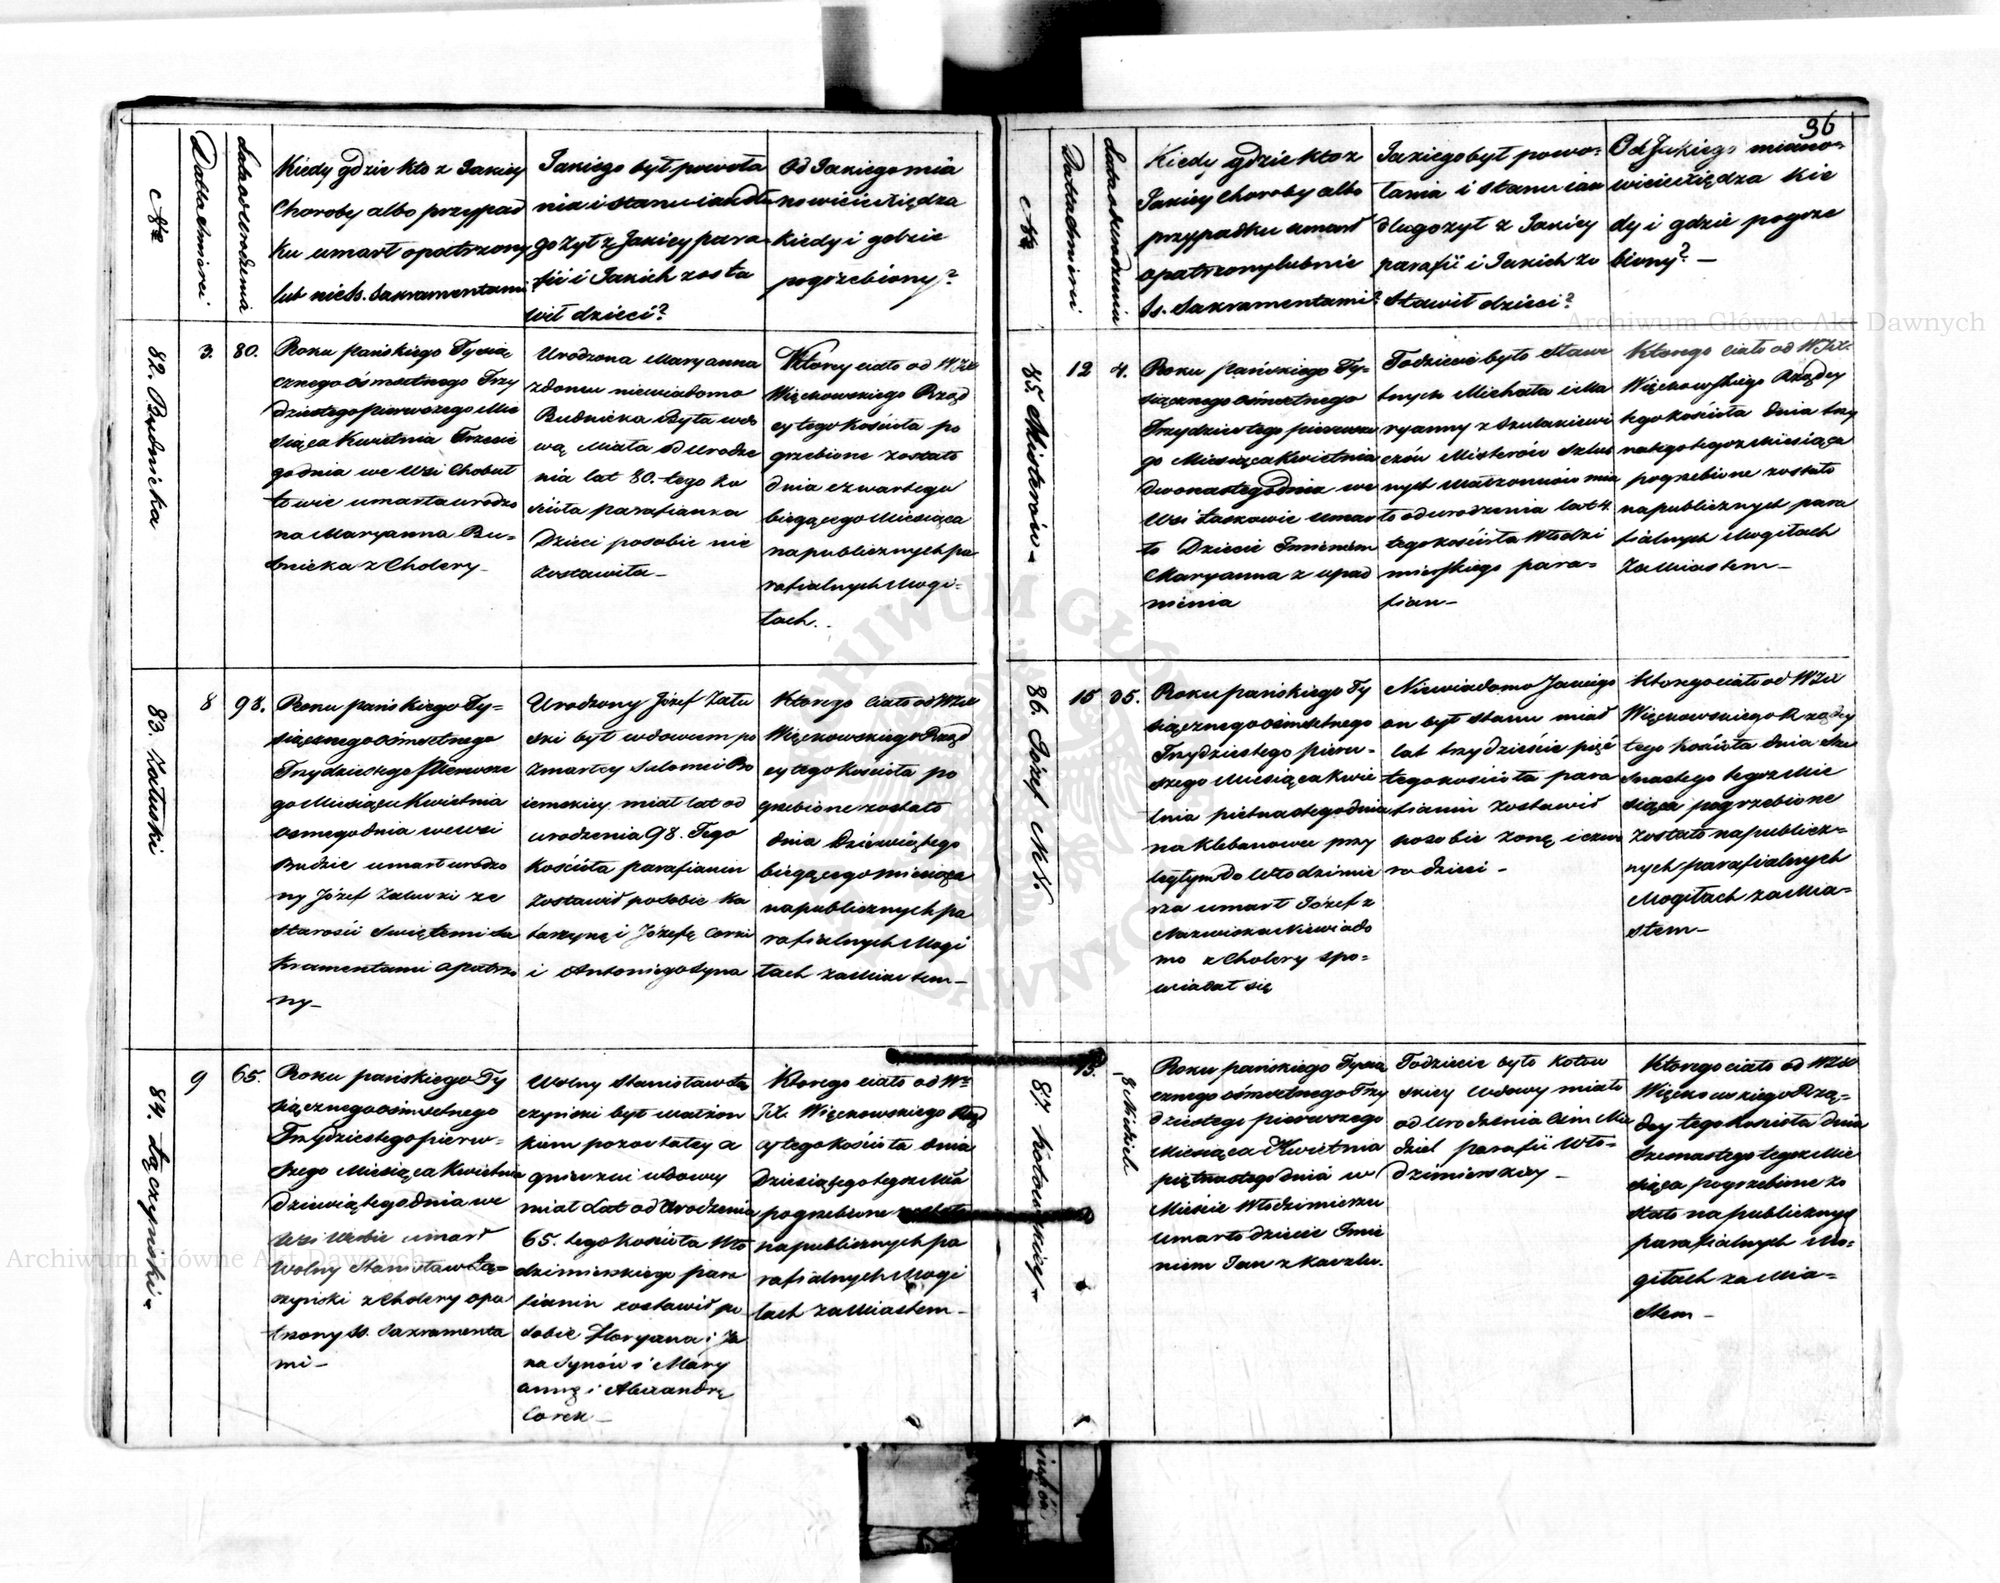 36
Nr
Data śmierci
Lata od urodzenia
Kiedy gdzie kto z Jakiey
Choroby albo przypad
ku umarł opatrzony
lub nie ŚŚ. Sakramentami
Jakiego był powoła
nia i stanu iak dłu
go żył z Jakiey para
fii i Jakich zosta
wił dzieci?
Od Jakiego mia
nowicie Xiędza
kiedy i gdzie
pogrzebiony?
82. Budnicka
3.
80.
Roku pańskiego Tysią
cznego ośmsetnego Trzy
dziestego pierwszego Mie
siąca Kwietnia Trzecie
go dnia we wsi Chobuł
towie umarła urodzo
na Maryanna Bu-
dnicka z Cholery
Urodzona Maryanna
z domu niewiadomo
Budnicka Była wdo
wą Miała od Urodze
nia lat 80. tego ko
ścioła parafianka
Dzieci po sobie nie
zostawiła
Którey ciało od WJX
Więckowskiego Rząd
cy tego Kościoła po
grzebione zostało
dnia czwartego
biegącego Miesiąca
na publicznych pa
rafialnych Mogi-
łach.
83. Załuski
8
98.
Roku pańskiego Ty=
siącznego ośmsetnego
Trzydziestego Pierwsze
go Miesiąca Kwietnia
osmego dnia we wsi
Budzie umarł urodzo
ny Józef Załuski ze
starości Swiętemi Sa
kramentami opatrzo
ny
Urodzony Józef Zału
ski był wdowcem po
zmarłey Salomei Bo
iemskiey miał lat od
urodzenia 98. Tego
kościoła parafianin
zostawił po sobie Ka
tarzynę i Józefę Corki
i Antoniego Syna
Którego ciało od WJX
Więckowskiego Rząd
cy tego Kościoła po
grzebione zostało
dnia Dziewiątego
biegącego miesiąca
na publicznych pa
rafialnych Mogi
łach za Miastem
84. Łączyński
9
65.
Roku pańskiego Ty
siącznego ośmsetnego
Trzydziestego pierw-
szego Miesiąca Kwietnia
dziewiątego dnia we
Wsi umarł
Wolny Stanisław Łą=
czyński z Cholery opa
trzony ŚŚ. Sakramenta
mi
Wolny Stanisław Łą
czyński był Małżon
kiem pozostałey A
gnieszki wdowy
miał Lat od Urodzenia
65. tego Kościoła Wło
dzimirskiego para
fianin zostawił po
sobie Floryana i Ja
na Synów i Mary
annę i Alexandrę
Corek
Którego ciało od W
JX. Więckowskiego Rząd
cy tego Kościoła dnia
Dziesiątego tegoż Mca
pogrzebione zostało
na publicznych pa
rafialnych Mogi
łach za Miastem
Nr
Data śmierci
Lata od urodzenia
Kiedy gdzie kto z
Jakiey Choroby albo
przypadku umarł
opatrzony lub nie
ŚŚ. Sakramentami?
Jakiego był powo-
łania i stanu iak
długo żył z Jakiey
parafii i Jakich zo
stawił dzieci?
Od Jakiego miano-
wicie Xiędza kie
dy i gdzie pogrze
biony?
85. Misterów
12
4.
Roku pańskiego Ty-
siącznego ośmsetnego
Trzydziestego pierwsze
go Miesiąca Kwietnia
dwonastego dnia we
Wsi Łaskowie umar
ło Dziecie Imieniem
Maryanna z upad
nienia
To dziecie było Sław
tnych Michała i Ma
ryanny z Szulakiewi
czów Misterów Szlub
nych Małżonków mia
ło od urodzenia lat 4.
tego kościoła Włodzi
mierskiego para=
fian
Którego ciało od WJX.
Więckowskiego Rządcy
tego Kościoła dnia trzy
nastego tegoż Miesiąca
pogrzebione zostało
na publicznych para
fialnych Mogiłach
za Miastem
86. Józef N.N.
15
35.
Roku pańskiego Ty
siącznego ośmsetnego
Trzydziestego pierw-
szego Miesiąca Kwie
tnia piętnastego dnia
na Klebanowce przy
ległym do Włodzimie
rza umarł Józef z
Nazwiska Niewiado
mo z Cholery spo-
wiadał się
Niewiadomo Jakiego
on był stanu miał
lat trzydzieście pięć
tego kościoła para
fianin zostawił
po sobie żonę i czwo
ro dzieci
Którego ciało od WJX
Więckowskiego Rządcy
tego Kościoła dnia Sze
snastego tegoż Mie
siąca pogrzebione
zostało na publicz=
nych parafialnych
Mogiłach za Mia=
stem
87. Kotowskiey
15.
8 Niedziel.
Roku pańskiego Tysią
cznego ośmsetnego Trzy
dziestego pierwszego
Miesiąca Kwietnia
piętnastego dnia w
Mieście Włodzimierzu
umarło dziecie Imie
niem Jan z Kaszlu.
To dziecie było Kotow
skiey wdowy miało
od Urodzenia Ośm Nie
dziel parafii Wło-
dzimirskiey
Którego ciało od WJX
Więckowskiego Rzą-
dcy tego Kościoła dnia
Szesnastego tegoż Mie
siąca pogrzebione zo
stało na publicznych
parafialnych Mo-
giłach za Mia=
stem
Archiwum Główne Akt Dawnych
Archiwum Główne Akt Dawnych